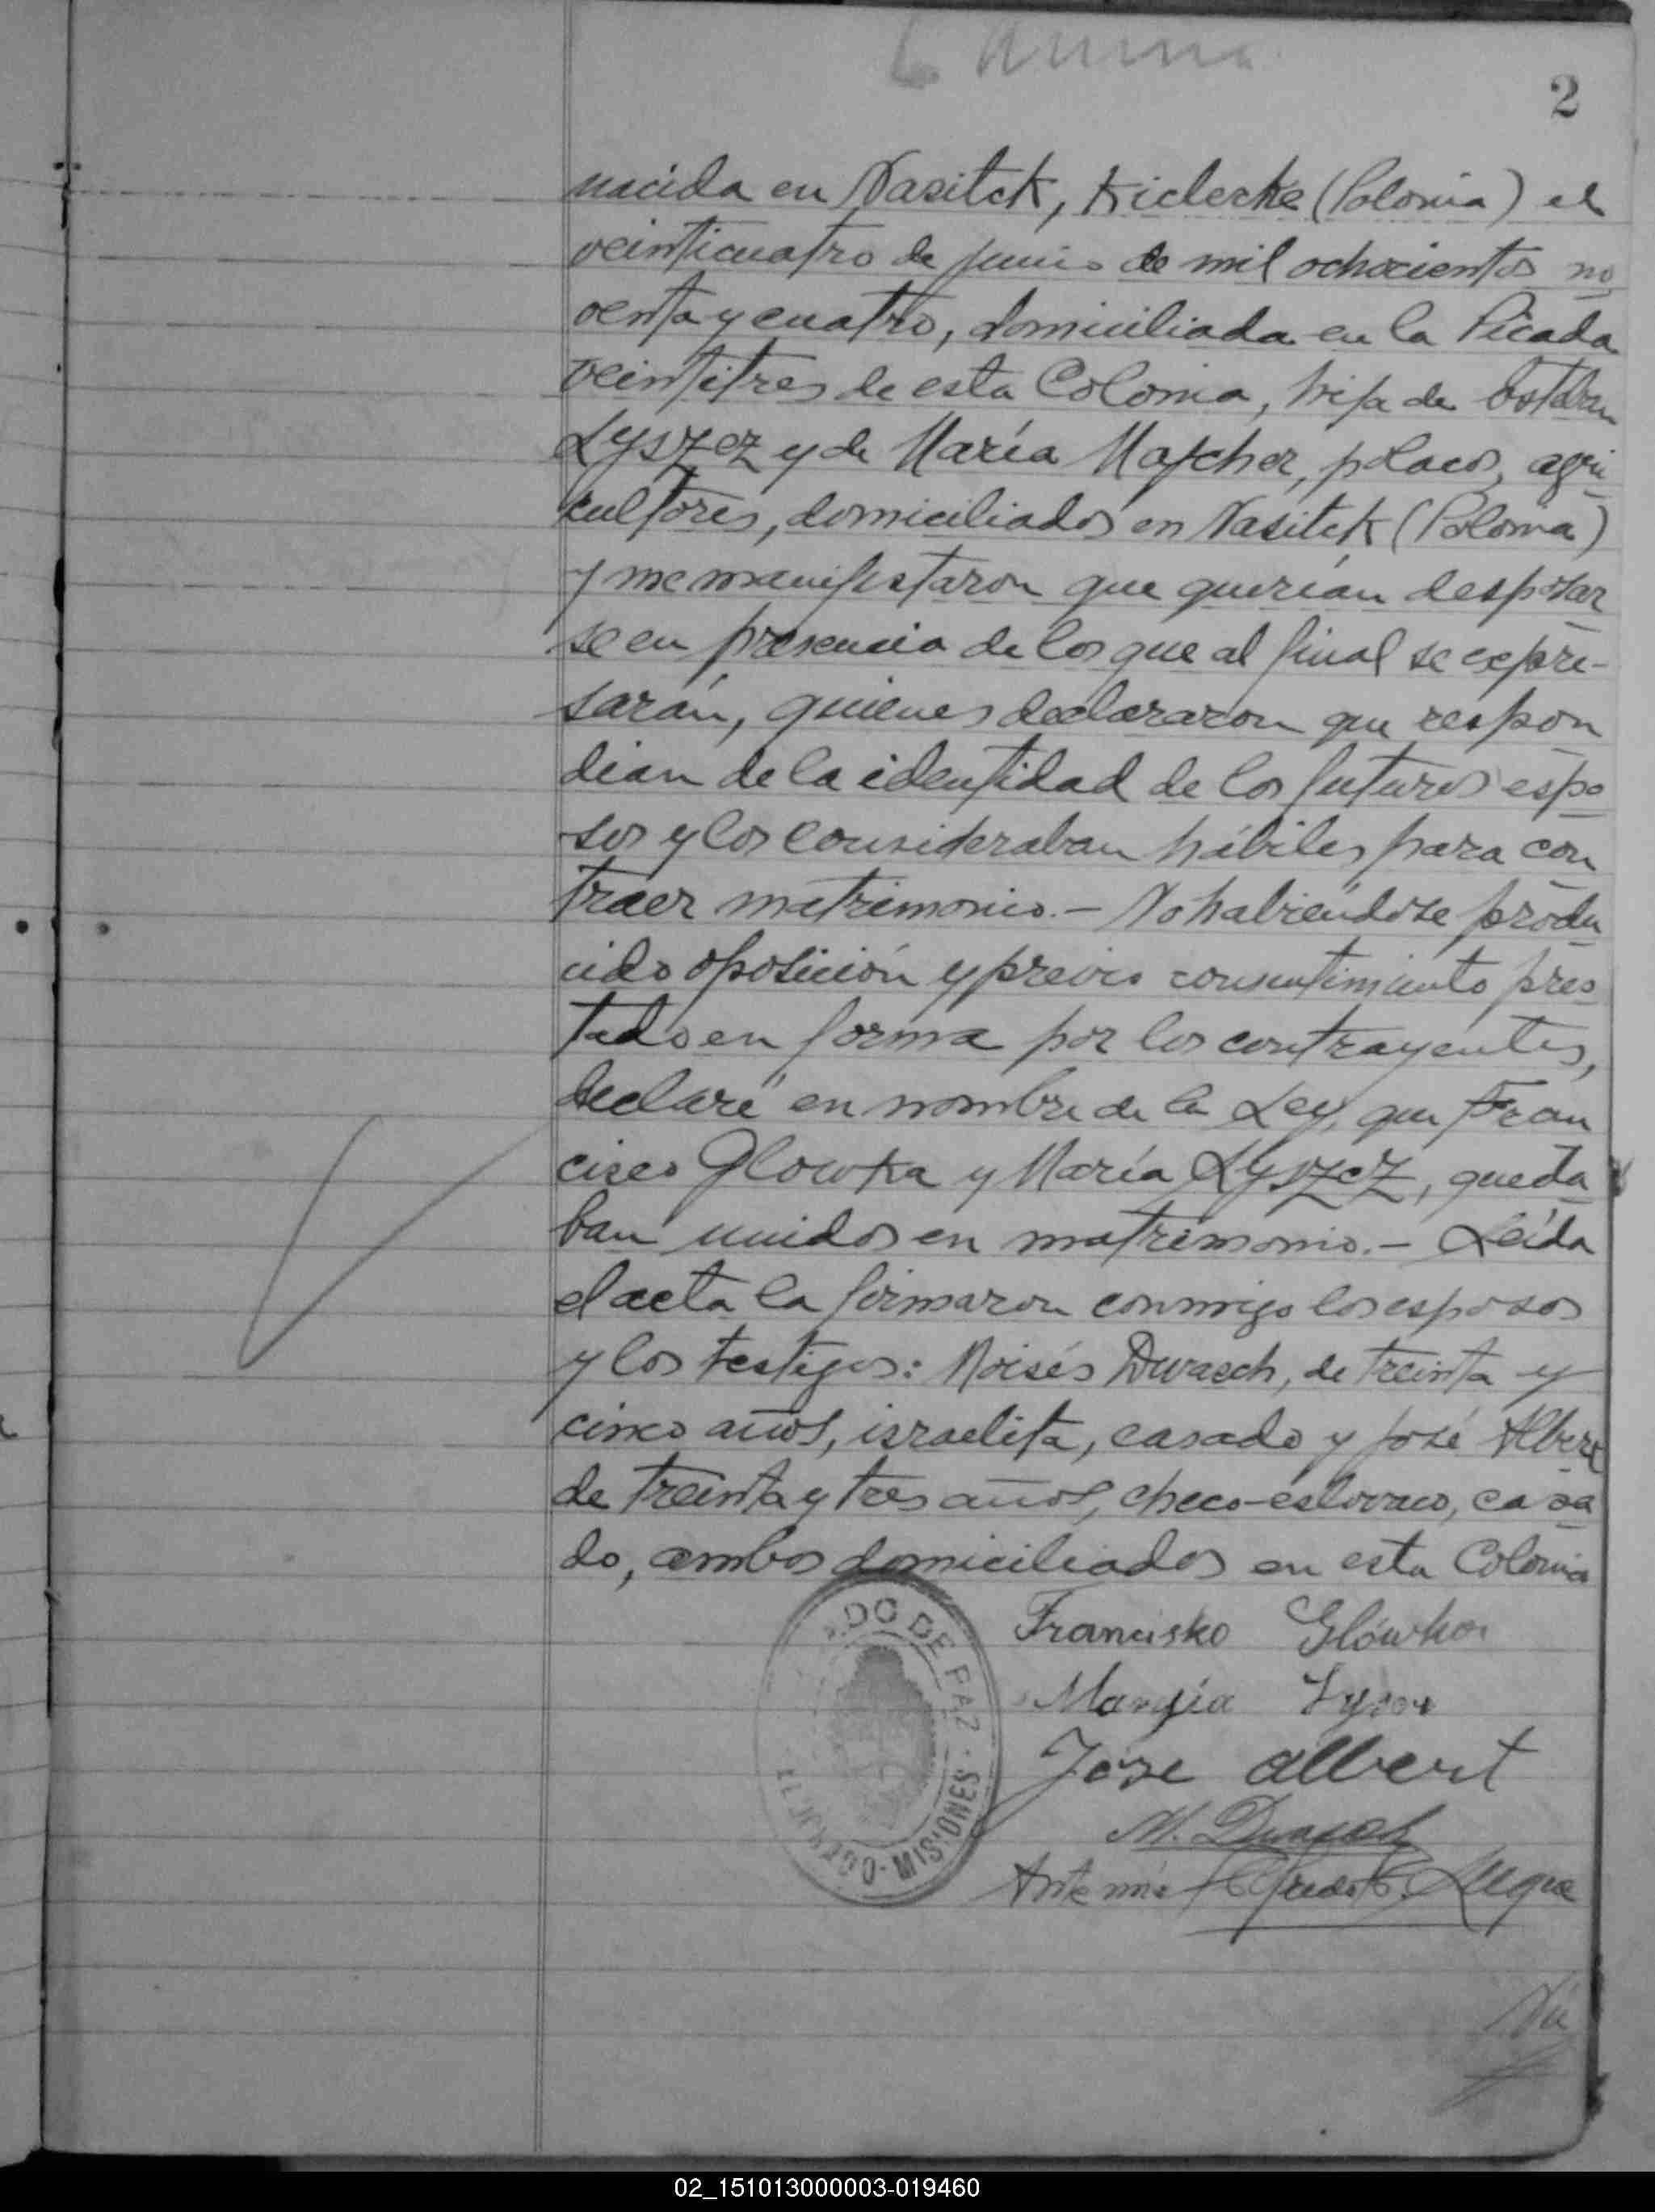 2
nacida en Nasitck, Kiclerke (Polonia) el
veinticuatro de junio de mil ochocientos no
venta y cuatro, domiciliada en la Picada
veintitres de esta Colonia, hija de
Lyszcz y de María Majcher, polacos, agri
cultores, domiciliados en Nasitck (Polonia)
y me manifestaron que querían desposar
se en presencia de los que al final se expre-
sarán, quienes declararon que respon
dian de la identidad de los futuros espo
sos y los consideraban hábiles para con
traer matrimonio.- No habiéndose produ
cido oposición y previo consentimiento pres
tado en forma por los contrayentes,
declaré en nombre de la Ley, que Fran
cisco Glowka y María Lyszcz, queda
ban unidos en matrimonio.- Leída
el acta la firmaron conmigo los esposos
y los testigos: Moisés Dwasch, de treinta y
cinco años, israelita, casado y José Albert
de treinta y tres años, checo-eslovaco, casa
do, ambos domiciliados en esta Colonia
Francisko Glówka
Maryia
Jose Albert
M. Dwasch
Ante mí: Alfredo
DO DE PAZ - ELDORADO - MISIONES
02_151013000003-019460